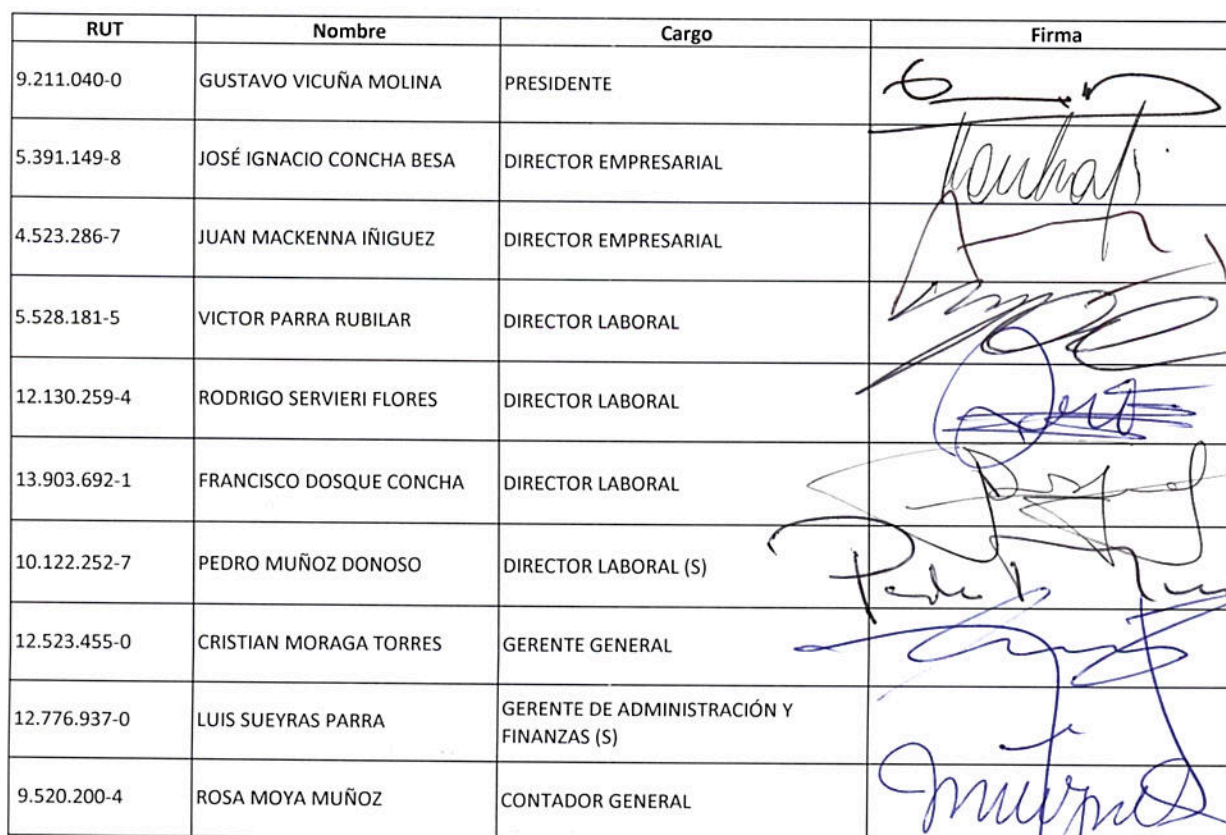 RUT Nombre Cargo Firma
9.211.040-0 GUSTAVO VICUÑA MOLINA PRESIDENTE
5.391.149-8 JOSÉ IGNACIO CONCHA BESA DIRECTOR EMPRESARIAL
4.523.286-7 JUAN MACKENNA IÑIGUEZ DIRECTOR EMPRESARIAL
5.528.181-5 VICTOR PARRA RUBILAR DIRECTOR LABORAL
12.130.259-4 RODRIGO SERVIERI FLORES DIRECTOR LABORAL
13.903.692-1 FRANCISCO DOSQUE CONCHA DIRECTOR LABORAL
10.122.252-7 PEDRO MUÑOZ DONOSO DIRECTOR LABORAL (S)
12.523.455-0 CRISTIAN MORAGA TORRES GERENTE GENERAL
12.776.937-0 LUIS SUEYRAS PARRA GERENTE DE ADMINISTRACIÓN Y
FINANZAS (S)
9.520.200-4 ROSA MOYA MUÑOZ CONTADOR GENERAL